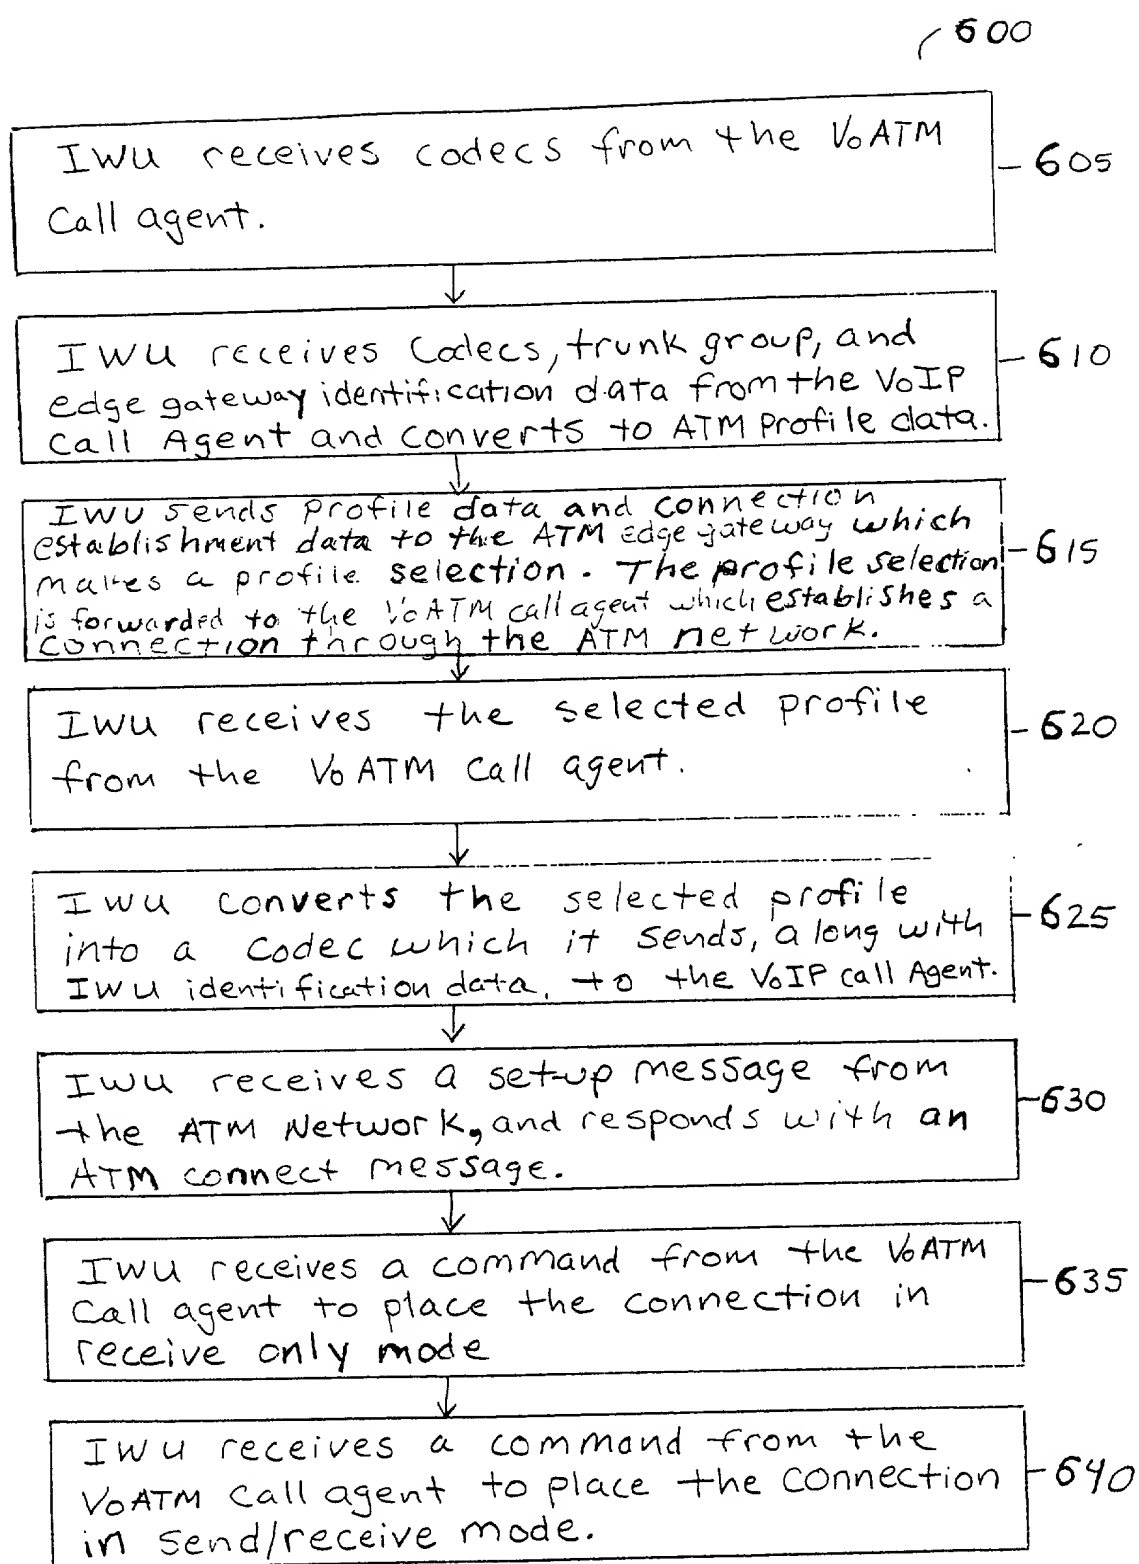 600
IWU receives codecs from the VoATM
Call agent.
605
IWU receives Codecs, trunk group, and
edge gateway identification data from the VoIP
Call Agent and converts to ATM Profile data.
610
IWU sends profile data and connection
establishment data to the ATM Edge gateway which
makes a profile selection. The profile selection
is forwarded to the VoATM call agent which establishes a
connection through the ATM network.
615
IWU receives the selected profile
from the VoATM Call agent.
620
IWU converts the selected profile
into a Codec which it sends, along with
IWU identification data, to the VoIP call Agent.
625
IWU receives a set-up message from
the ATM Network, and responds with an
ATM connect message.
630
IWU receives a command from the VoATM
Call agent to place the connection in
receive only mode
635
IWU receives a command from the
VoATM Call agent to place the connection
in send/receive mode.
640